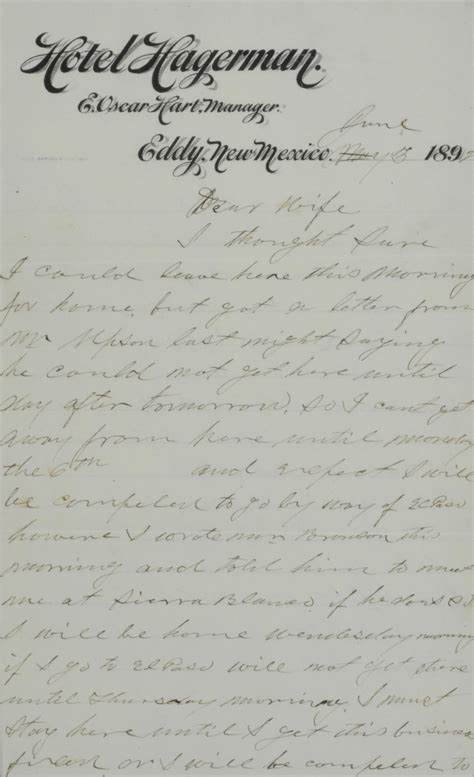 Hotel Hagerman.
E. Oscar Hart, Manager.
Eddy, New Mexico. June 3 189
Dear Wife
I thought Sure
I could leave here this Morning
for home. but got a letter from
Mr Upson last night saying
he could not get here until
day after tomorrow. So I cant get
away from here until monday
the 6th and expect I will
be compeled to go by way of El Paso
howevr I wrote Mr Bronson this
morning and told him to meet
me at Sierra Blanco. if he does so
I will be home wendesday morning
if I go to El Paso will not get there
until Thursday morning. I must
stay here until I get this business
fixed or I will be compelen to